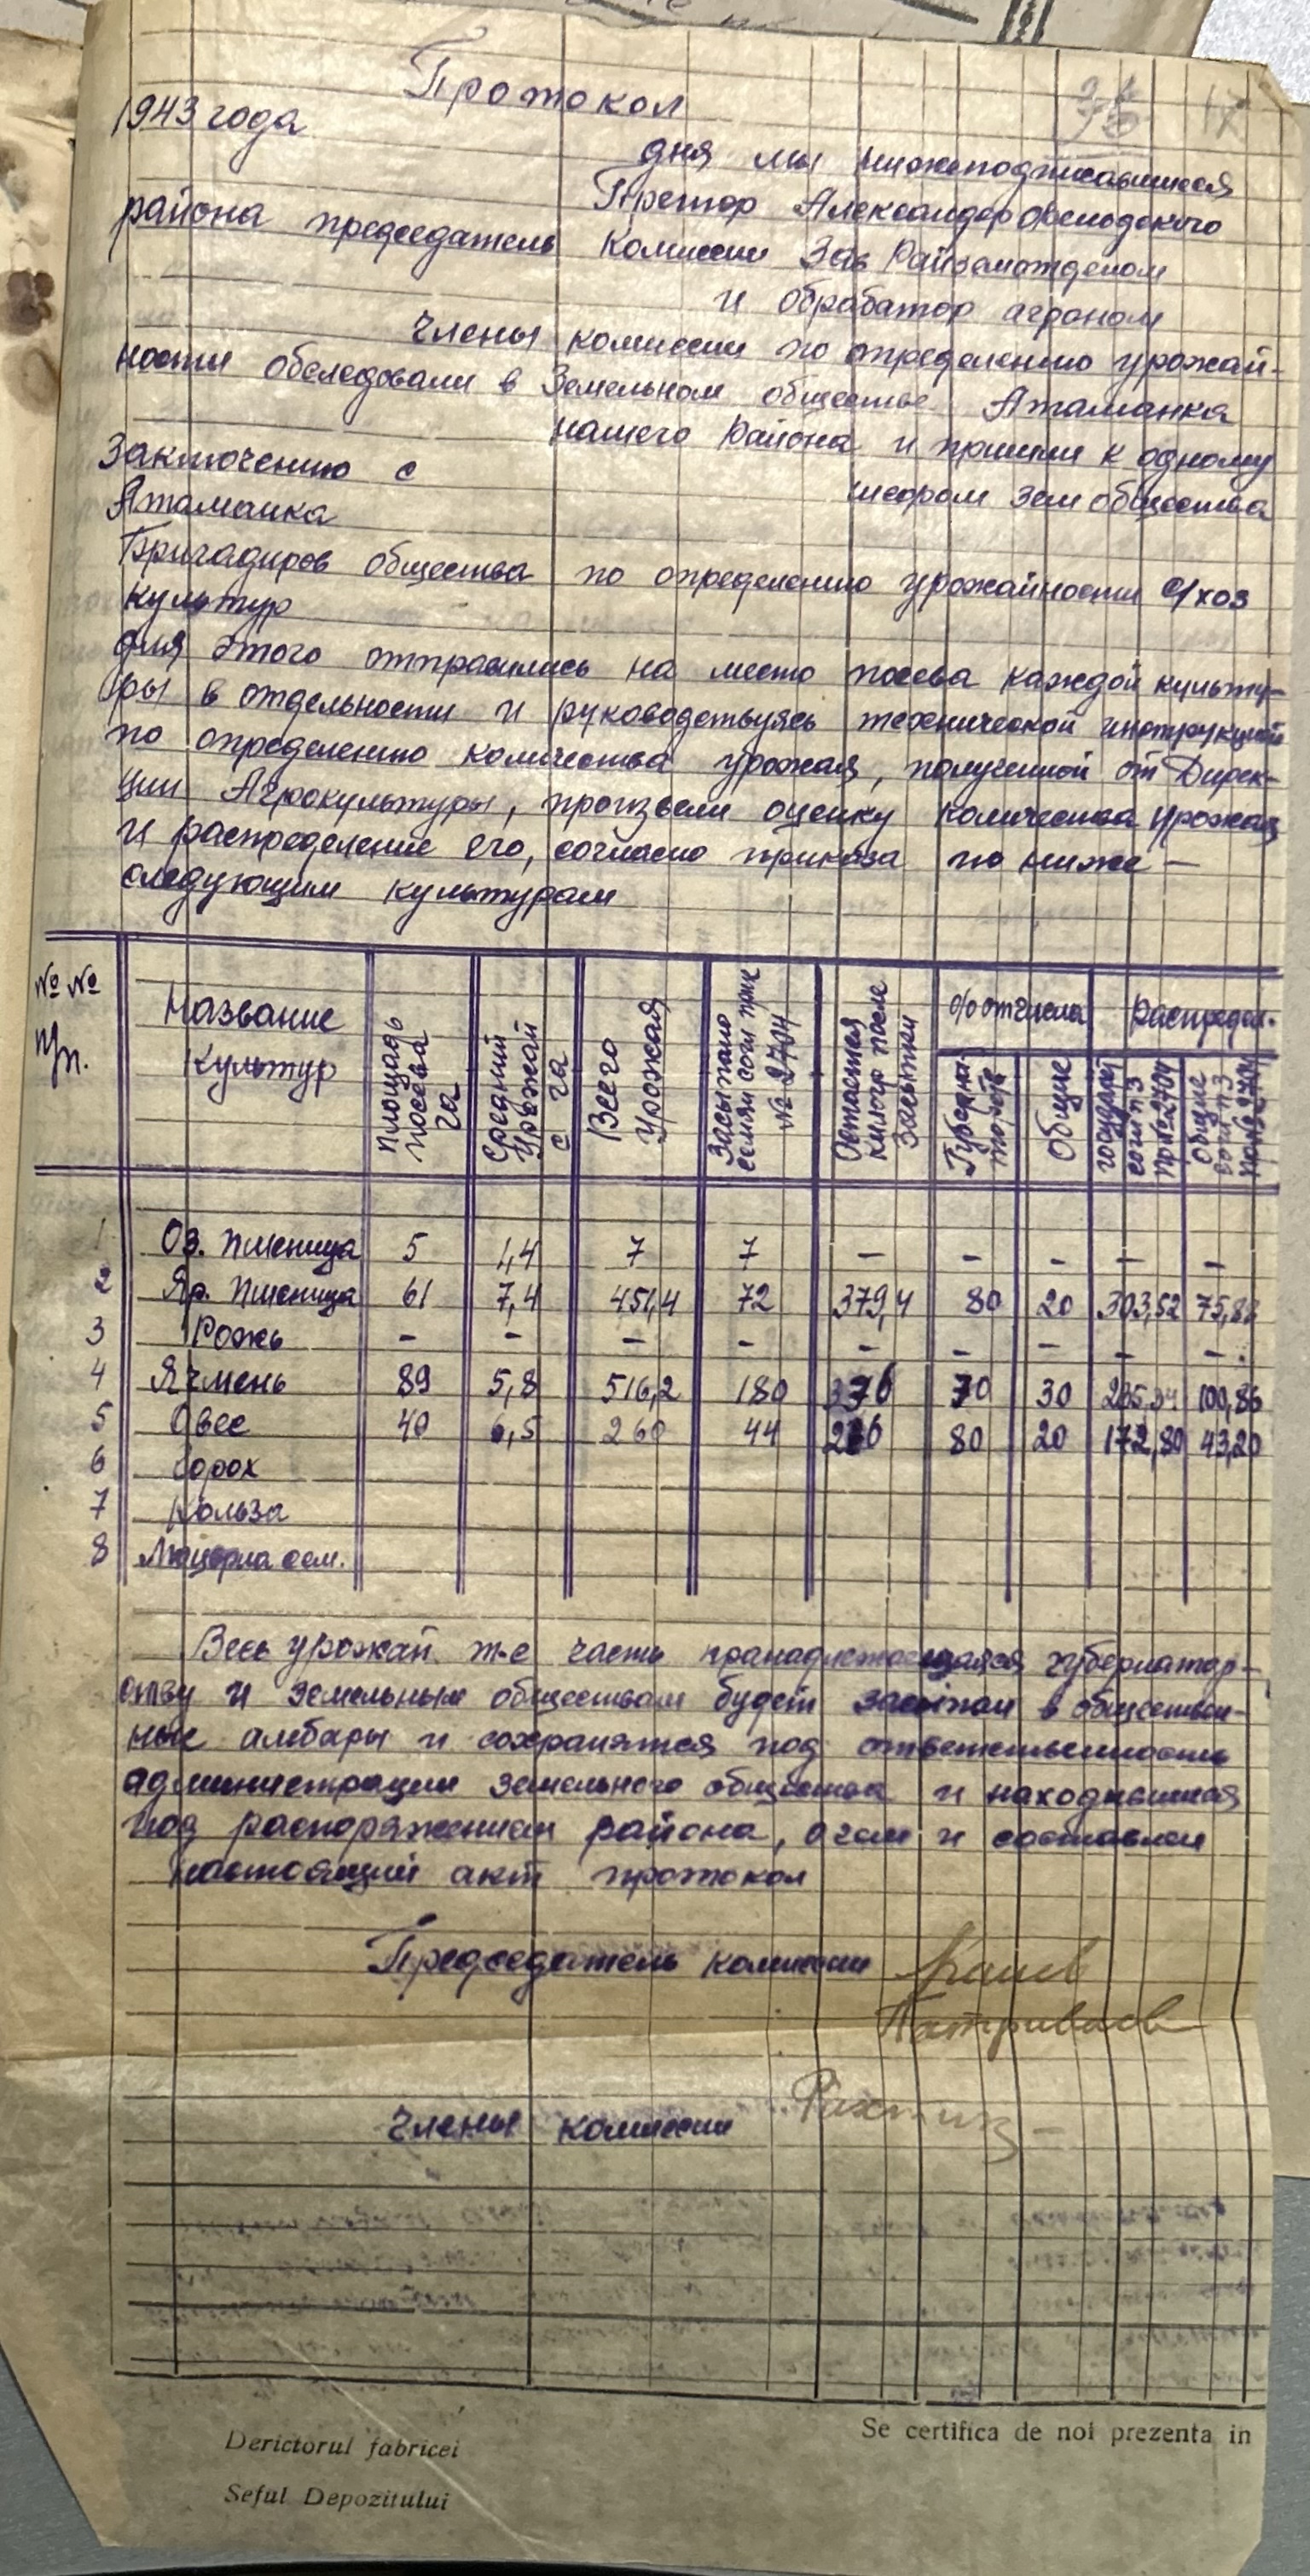 Протокол
1943 года
дня мы нижеподписавшиеся
Претор Александерфельдского
района председатель Комиссии Зав Райземотделом
и обработор агроном
члены комиссии по определению урожай-
ности обследовали в Земельном обществе Атаманка
нашего Района и пришли к одному
Заключению с
шефом зем общества
Атаманка
Бригадиров общества по определению урожайности с/хоз
культур
для этого отправились на место посева каждой культу-
ры в отдельности и руководствуясь технической инструкцией
по определению количества урожая, полученной от Дирек-
ции Агрокультуры, произвели оценку количества урожая
и распределение его, согласно приказа по ниже-
следующим культурам
№ № п/п. Название культур Площадь посева га Средний урожай с га Всего урожая Засыпано семян согл прик № 2704 Остается килогр после засыпки % отчисла Распредел.
Общие
1 Оз. пшеница 5 1,4 7 7 – – – – –
2 Яр. пшеница 61 7,4 451,4 72 379,4 80 20 303,52 75,88
3 Рожь – – – – – – – – –
4 Ячмень 89 5,8 516,2 180 30 100,86
5 Овес 40 6,5 260 44 80 20 172,80 43,20
6 Горох
7 Кользa
8 Люцерна сем.
Весь урожай т-е часть принадлежащаяся губернатор-
ству и земельным обществам будет засыпан в обществен-
ные амбары и сохранятся под ответственность
администрации земельного общества и находившиеся
под распоряжением района, о чем и составлен
настоящий акт протокол
Председатель комиссии
Члены комиссии
Derictorul fabricei
Se certifica de noi prezenta in
Seful Depozitului